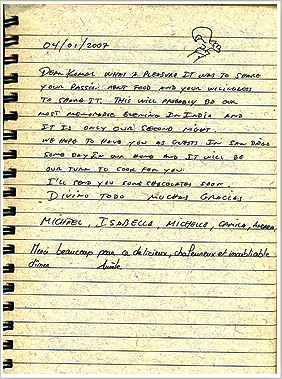 04/01/2007
DEAR KAMAL WHAT A PLEASURE IT WAS TO SHARE
YOUR PASSION ABOUT FOOD AND YOUR WILLINGNESS
TO SHARE IT. THIS WILL PROBABLY BE OUR
MOST MEMORABLE EVENING IN INDIA AND
IT IS ONLY OUR SECOND NIGHT.
WE HOPE TO HAVE YOU AS GUESTS IN SAN DIEGO
SOME DAY IN OUR HOME AND IT WILL BE
OUR TURN TO COOK FOR YOU.
I'LL SEND YOU SOME CHOCOLATES SOON.
DIVINO TODO MUCHAS GRACIAS
MICHAEL, ISABELLA MICHELLE, CAMILA,
Merci beaucoup pour ce délicieux, chaleureux et inoubliable
dîner.